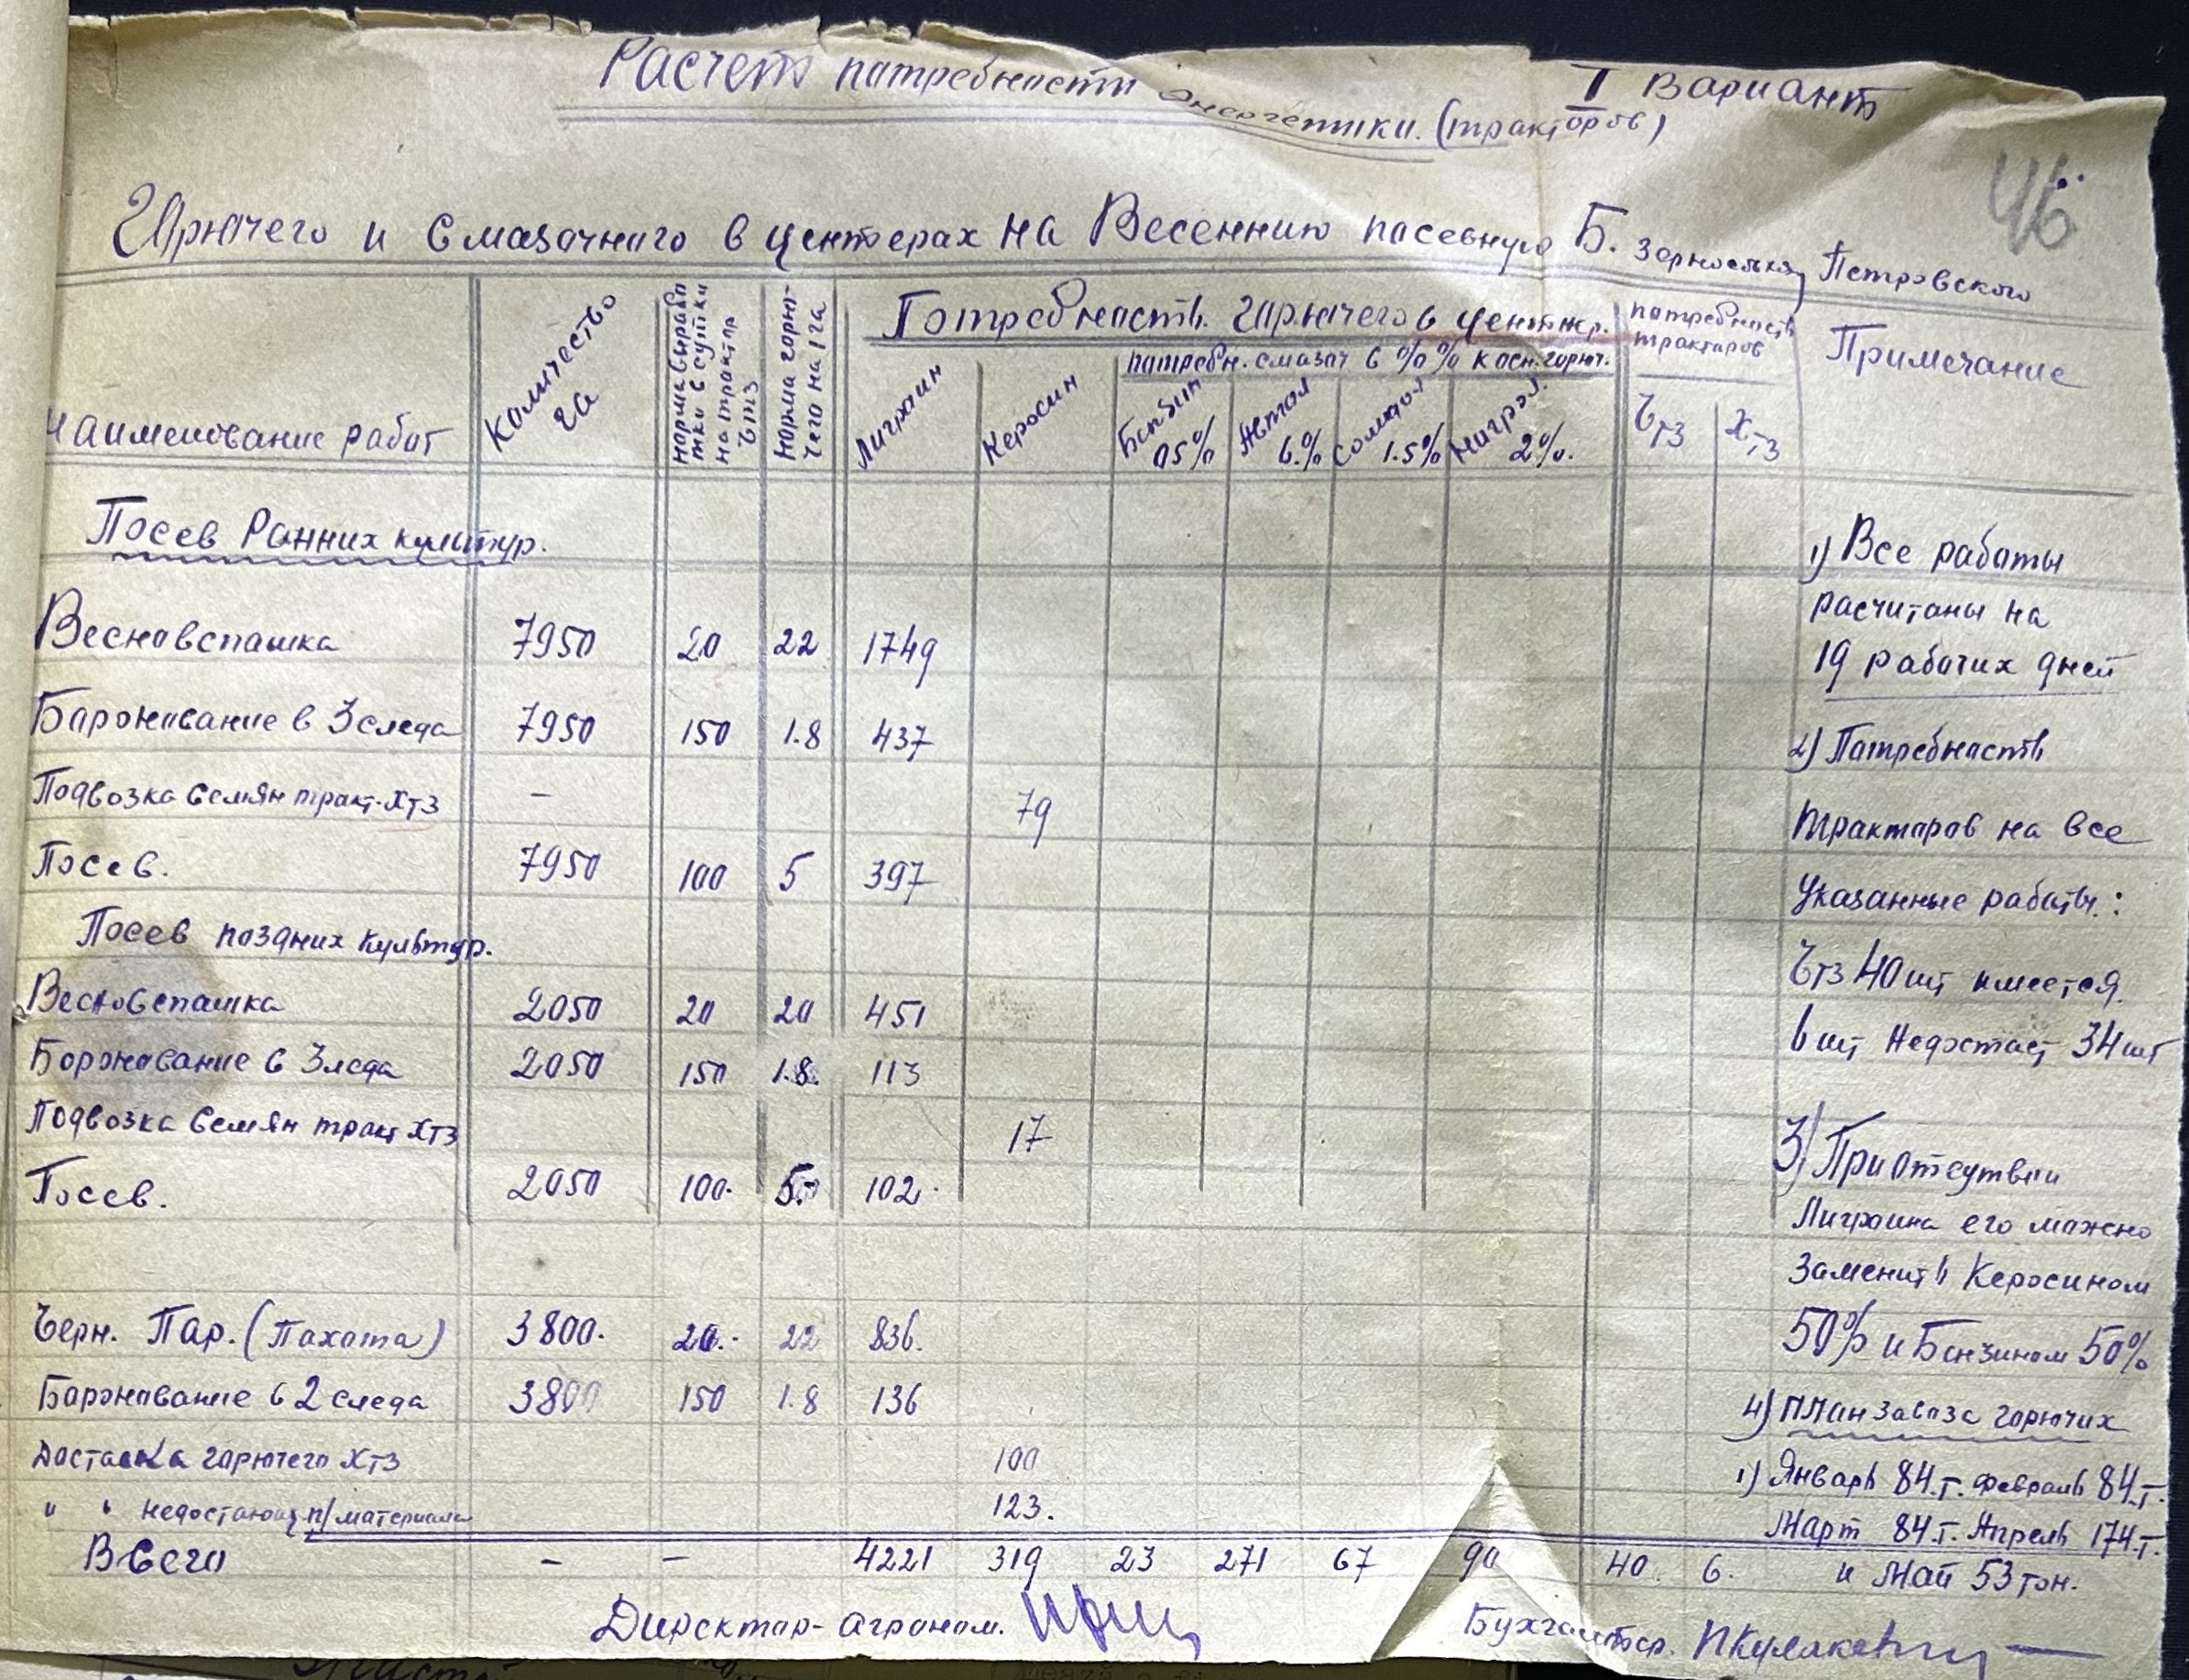 Расчет потребности энергетики. (тракторов)
I Вариант
46
Горючего и Смазочного в центерах на Весеннию посевную Б. Петровского
Наименование работ
Количество га
норма выработки в сутки на трактор ЧТЗ
Норма горючего на 1 га
Потребность горючего в центнер.
Лигроин
Керосин
потребн. смазоч в %% к осн. горюч.
Бензин 05%
Автол 6.%
Солидол 1.5%
Нигрол 2%.
потребность тракторов
ЧТЗ
ХТЗ
Примечание
Посев Ранних культур.
Весновспашка 7950 20 22 1749
Боронование в 3 следа 7950 150 1.8 437
Подвозка Семян тракт. ХТЗ – 79
Посев. 7950 100 5 397
Посев поздних культур.
Весновспашка 2050 20 20 451
Боронование в 3 леда 2050 150 1.8. 113
Подвозка Семян тракт ХТЗ 17
Посев. 2050 100. 5.- 102.
Черн. Пар. (Пахота) 3800. 20.- 22 836.
Боронование в 2 следа 3800 150 1.8 136
Доставка горючего ХТЗ 100
" " недостающ п/материала 123.
Всего – – 4221 319 23 271 67 90 40. 6.
1) Все работы
расчитаны на
19 рабочих дней
2) Потребность
тракторов на все
указанные работы:
ЧТЗ 40 шт имеется
6 шт недостает 34 шт
3) При отсутвии
Лигроина его можно
Заменить Керосином
50% и Бензином 50%
4) план завоза горючих
1) Январь 84.т. февраль 84.т.
Март 84.т. Апрель 174.т.
и Май 53 тон.
Директор-агроном.
Бухгалтер.